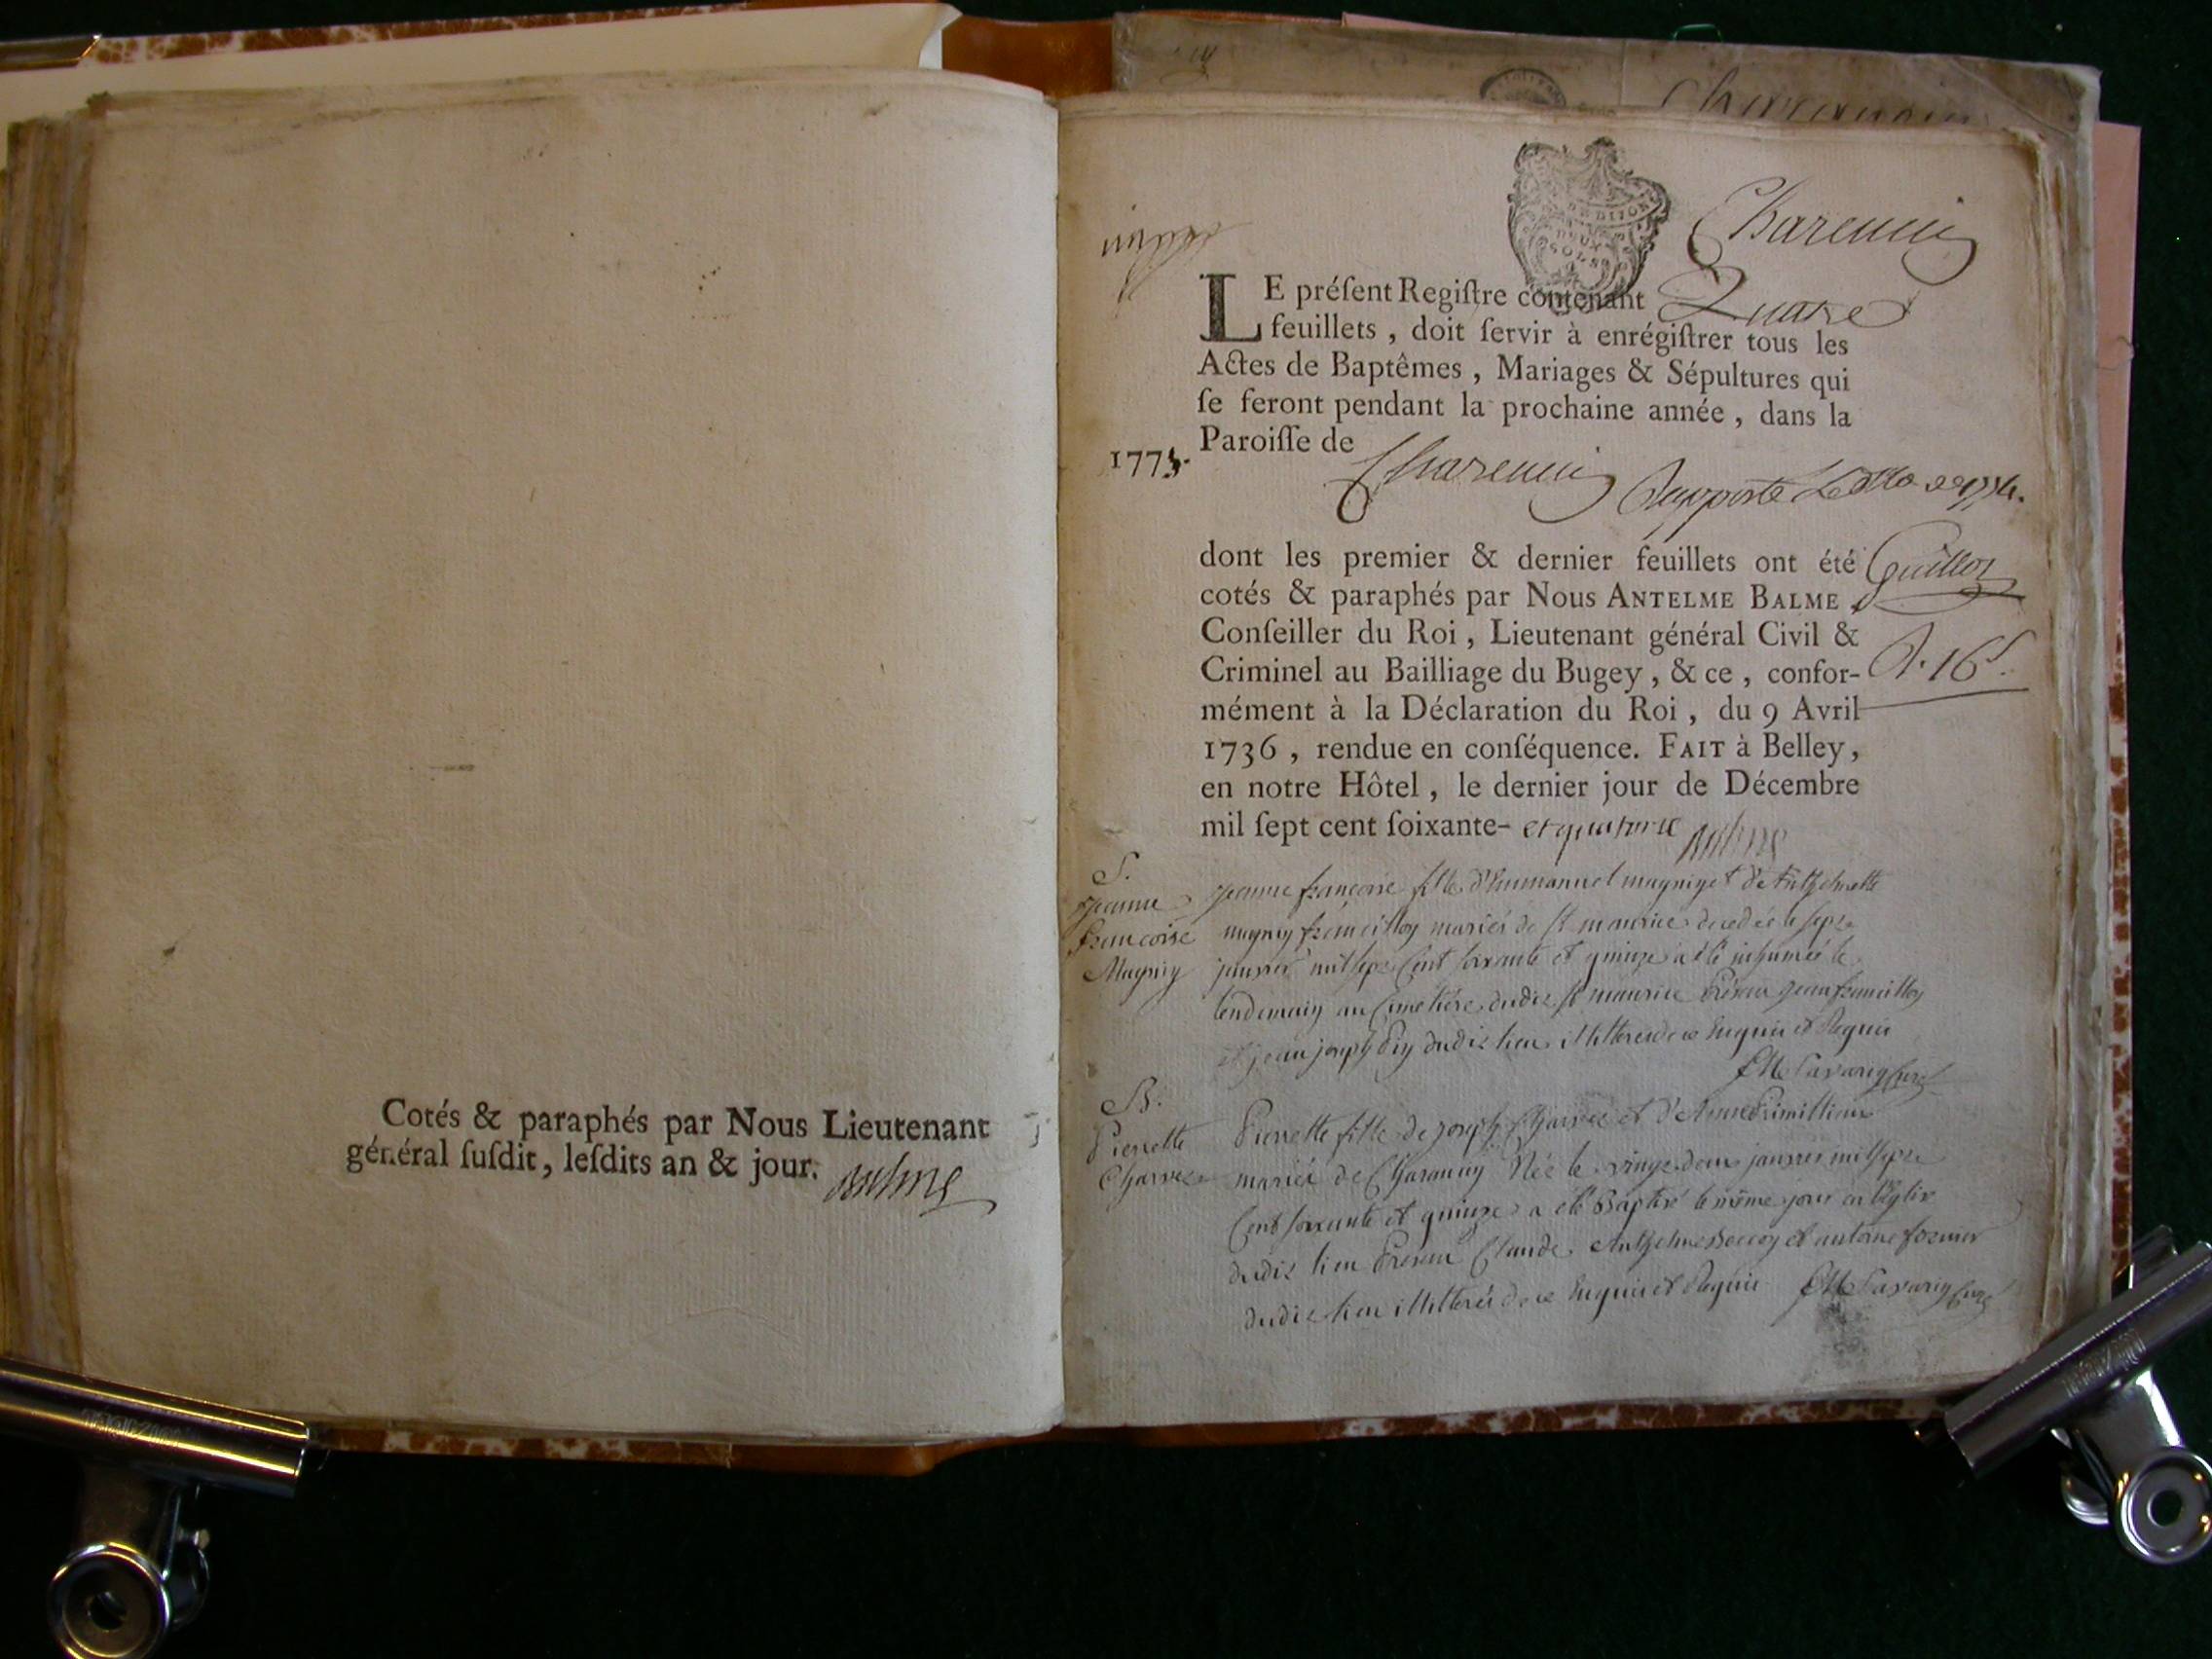 Cotés & paraphés par Nous Lieutenant
général ſuſdit, leſdits an & jour.
Charancin
DE DIJON
DEUX
SOLS
Charencin
LE préſent Regiſtre contenant Quatre
feuillets, doit ſervir à enrégiſtrer tous les
Actes de Baptêmes, Mariages & Sépultures qui
ſe feront pendant la prochaine année, dans la
Paroiſſe de
1775.
Charencin
dont les premier & dernier feuillets ont été
cotés & paraphés par Nous ANTELME BALME
Conſeiller du Roi, Lieutenant général Civil &
Criminel au Bailliage du Bugey, & ce, confor-
mément à la Déclaration du Roi, du 9 Avril
1736, rendue en conſéquence. FAIT à Belley,
en notre Hôtel, le dernier jour de Décembre
mil ſept cent ſoixante- et quatorze
Guillot
16ˢ
S.
jeanne
françoise
Magnin
jeanne françoise fille d'Emmanuel magnin et d'Anthelmette
mariés de St maurice decedée le sept
janvier mil sept cent soixante et quinze a été inhumée le
lendemain au cimetière dudit St maurice Présents jean
et jean joseph dudit lieu illitterés de ce Enquis et Requis
Savarin Curé
B.
Pierrette
Charvet
Pierrette fille de joseph Charvet et d'Anne
mariés de Charancin Née le vingt deux janvier mil sept
Cent soixante et quinze a été Baptisé le même jour en l'Eglise
dudit lieu Présents Claude Anthelme et antoine
dudit lieu illitterés de ce Enquis et Requis Savarin Curé